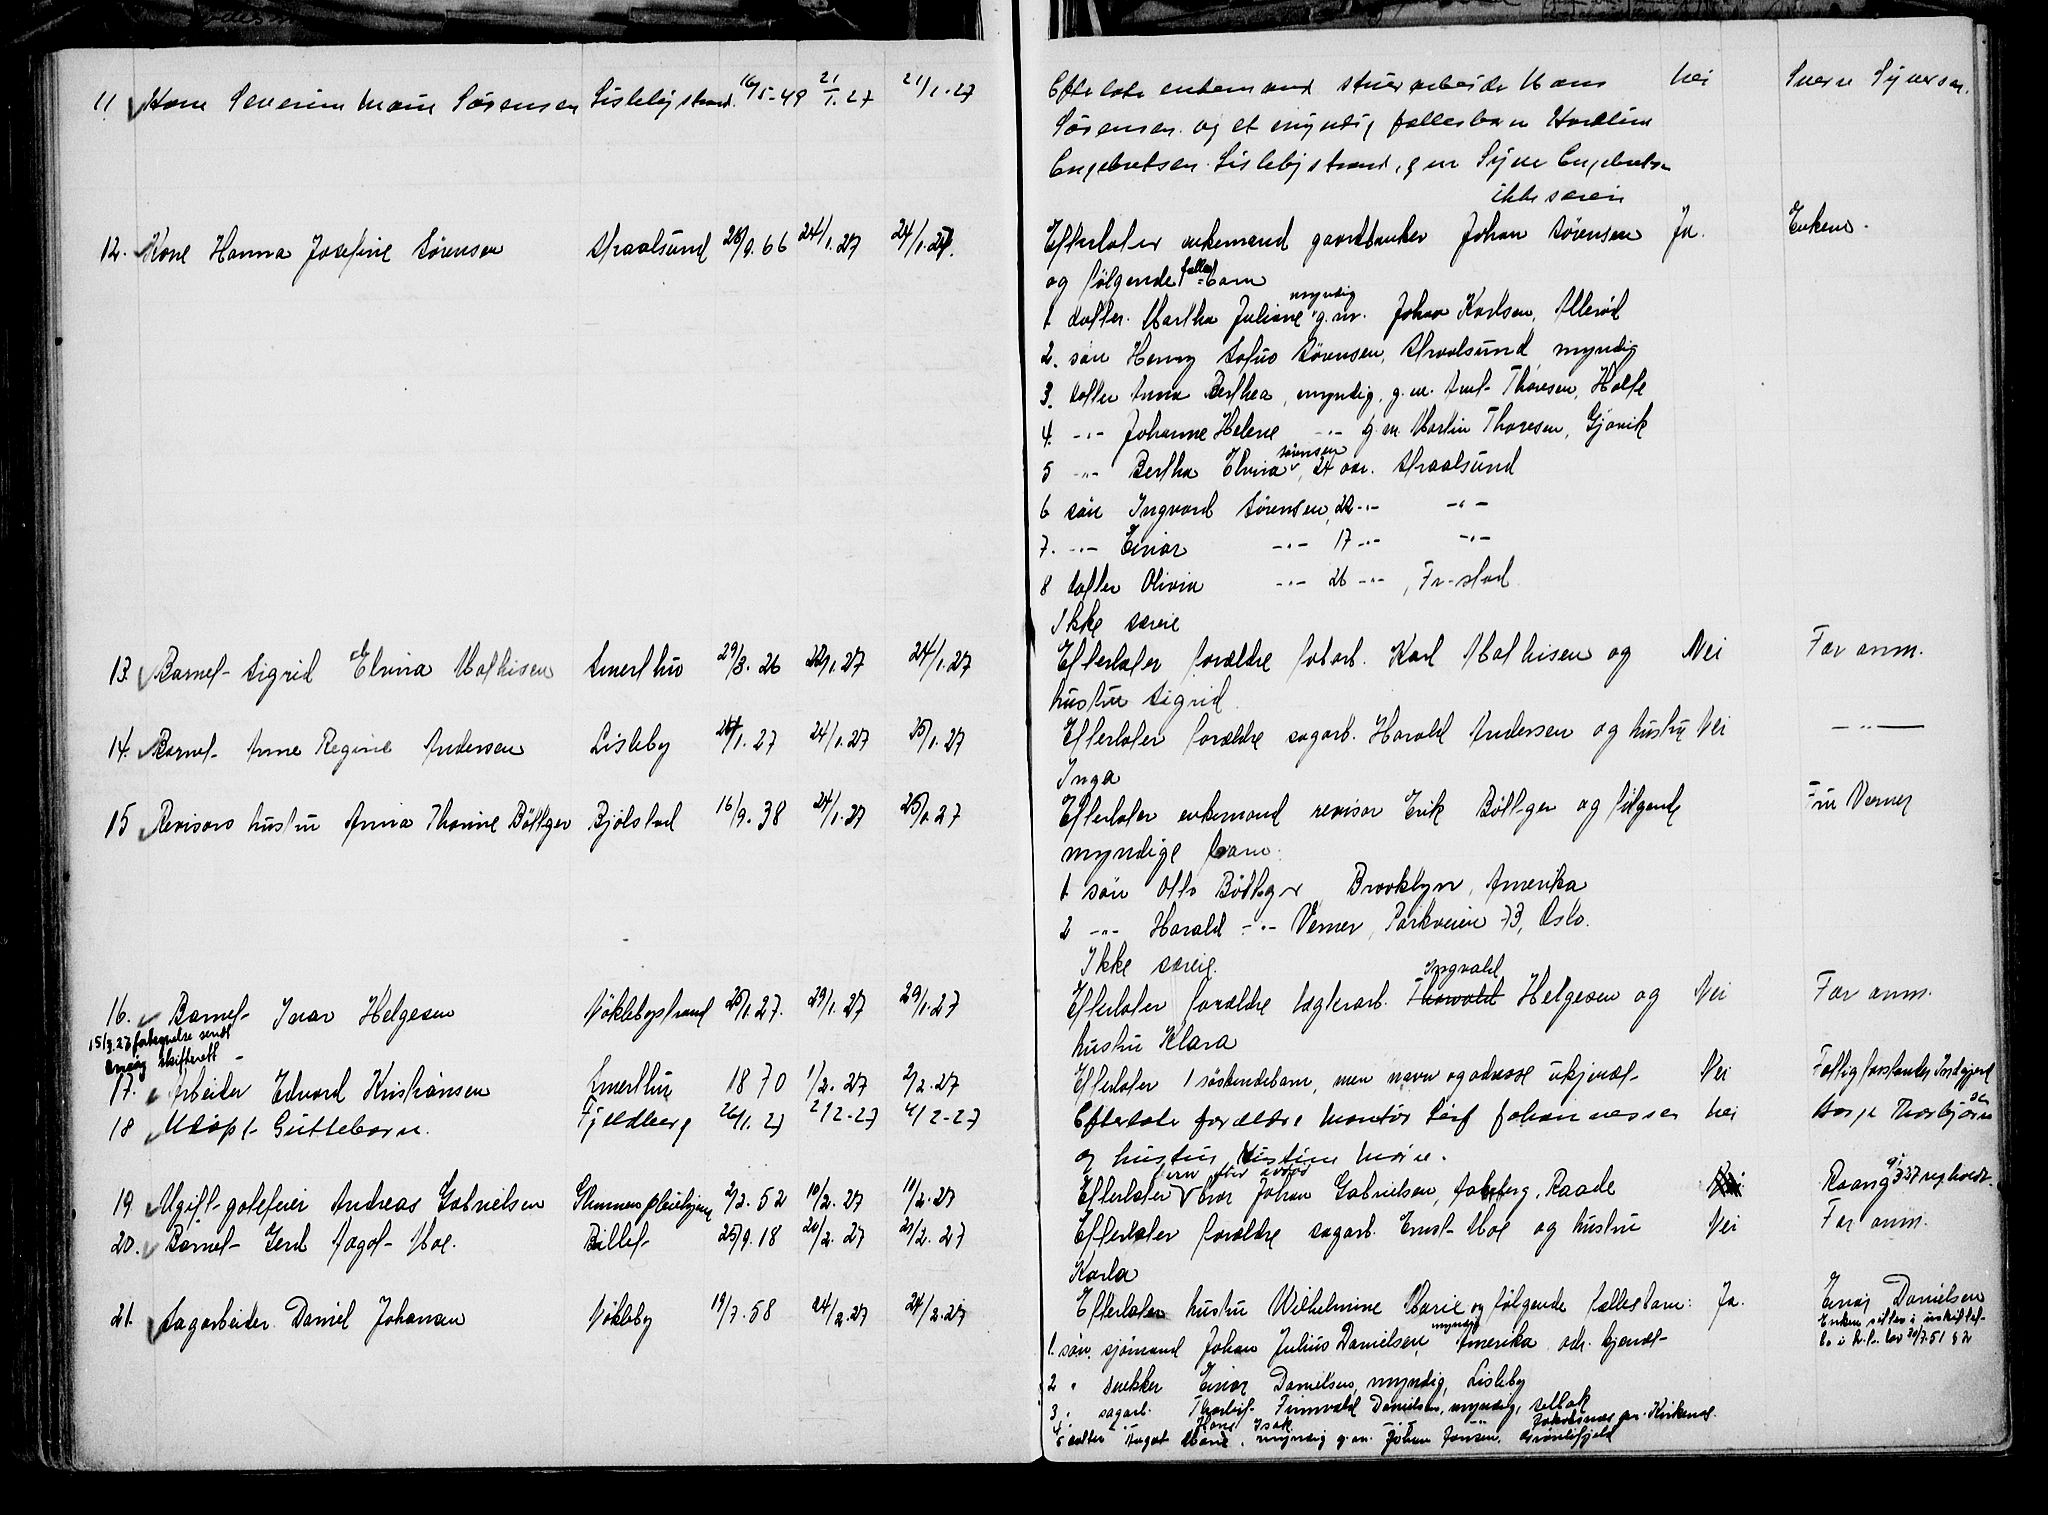 11 Kone Severine Marie Sørensen Lislebystrand. 16/5-49 21/1.27 21/1.27 Efterlate enkemand stuerarbeide Hans nei Sverre Syversen.
Sørensen og et myndig fællesbarn
Engebretsen Lislebystrand, g m Engebretsen
ikke særeie
12. Kone Hanna Josefine Sørensen Straalsund 28/9.66 24/1.27 24/1.27. Efterlater enkemand gaardbruker Johan Sørensen Ja. Enkem.
og følgende fælles barn
1 datter. Martha Juliane myndig g.m. Johan Karlsen, Allerød
2. søn Henry Sofus Sørensen, Straalsund, myndig
3. datter Anna Berthea, myndig, g.m. Thoresen,
4. -"- Johanne Helene -"- g.m. Martin Thoresen, Gjøvik
5 -"- Bertha Elvira Sørensen, 24 aar. Straalsund
6 søn Ingvard Sørensen, 22 -"- -"-
7. -"- Einar -"- 17 -"- -"-
8 datter Olivia -"- 26 -"- , Fr-stad
Ikke særeie
13. Barnet Sigrid Elvira Mathisen Smerthu 29/3.26 22/1.27 24/1.27 Efterlater forældre fabarb. Karl Mathisen og Nei Far anm.
hustru Sigrid
14. Barnet Anne Regine Andersen Lisleby 24/1.27 24/1.27 25/1.27 Efterlater forældre sagarb. Harald Andersen og hustru Nei -"-
Inga
15 Revisors hustru Anna Thorine Bøttger Bjølstad 16/9.38 24/1.27 25/1.27 Efterlater enkemand revisor Erik Bøttger og følgende Fru Verner
myndige barn:
1 søn Otto Bøttger Brooklyn, Amerika
2 -"- Harald -"- Verner, Parkveien 73, Oslo.
Ikke særeie.
16. Barnet Ivar Helgesen Nøklebystrand 25/1.27. 29/1.27 29/1.27 Efterlater forældre teglarb. Thorvald Ingvald Helgesen og Nei Far anm.
hustru Klara
15/3.27 sendt
skifterett
17. Arbeider Edvard Kristiansen Smerthu 1870 1/2.27 2/2.27 Efterlater 1 søskendebarn, men navn og adresse ukjendt Nei
18 Udøpt Guttebarn. Fjeldberg 26/1.27 2/2-27 4/2-27 Efterlate forældre montør Leif Johannessen nei
og hustru Kristine Marie.
19 Ugift gatefeier Andreas Gabrielsen Glemmen pleiehjem 2/2.52 10/2.27 11/2.27 Efterlater bror Johan Gabrielsen, Raade
20. Barnet Gerd Aagot Moe. Billet 25/9.18 20/2.27 21/2.27 Efterlater forældre sagarb. Ernst Moe og hustru Nei Far anm.
Karla
21. Sagarbeider Daniel Johansen Nøkleby 19/7.58 24/2.27 24/2.27 Efterlater hustru Wilhelmine Marie og følgende fællesbarn: Ja. Einar Danielsen
1. søn. sjømand Johan Julius Danielsen, myndig Amerika adr. kjendt
2 " snekker Einar Danielsen, myndig, Lisleby
3 " sagarb. Danielsen, myndig, Selbak
4 " Hans Isak
5 datter Aagot Marie, myndig g.m. Johan Jensen,